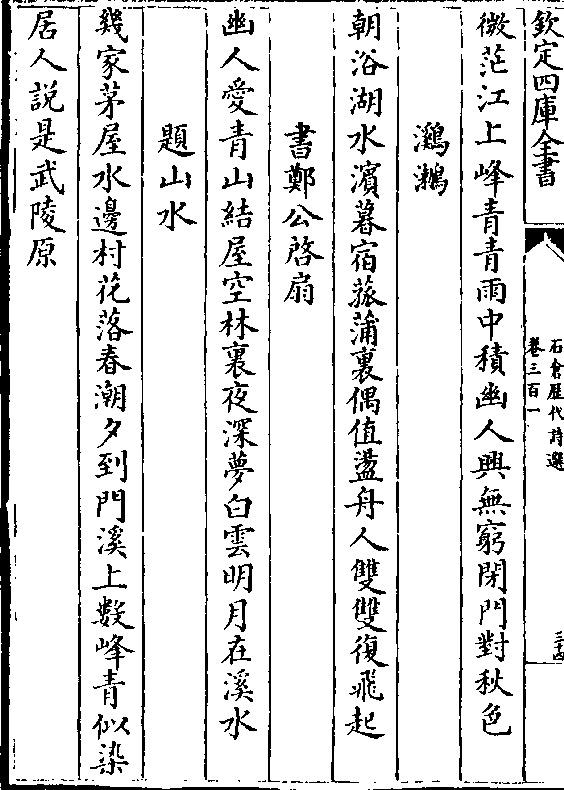 欽定四庫全書
石倉歴代詩選
卷三百一
三十四
微茫江上峰青青雨中積幽人興無窮閉門對秋色
鸂鶒
朝浴湖水濱暮宿菰蒲裏偶值盪舟人雙雙復飛起
書鄭公啓扇
幽人愛青山結屋空林裏夜深夢白雲明月在溪水
題山水
幾家茅屋水邊村花落春潮夕到門溪上數峰青似染
居人説是武陵原